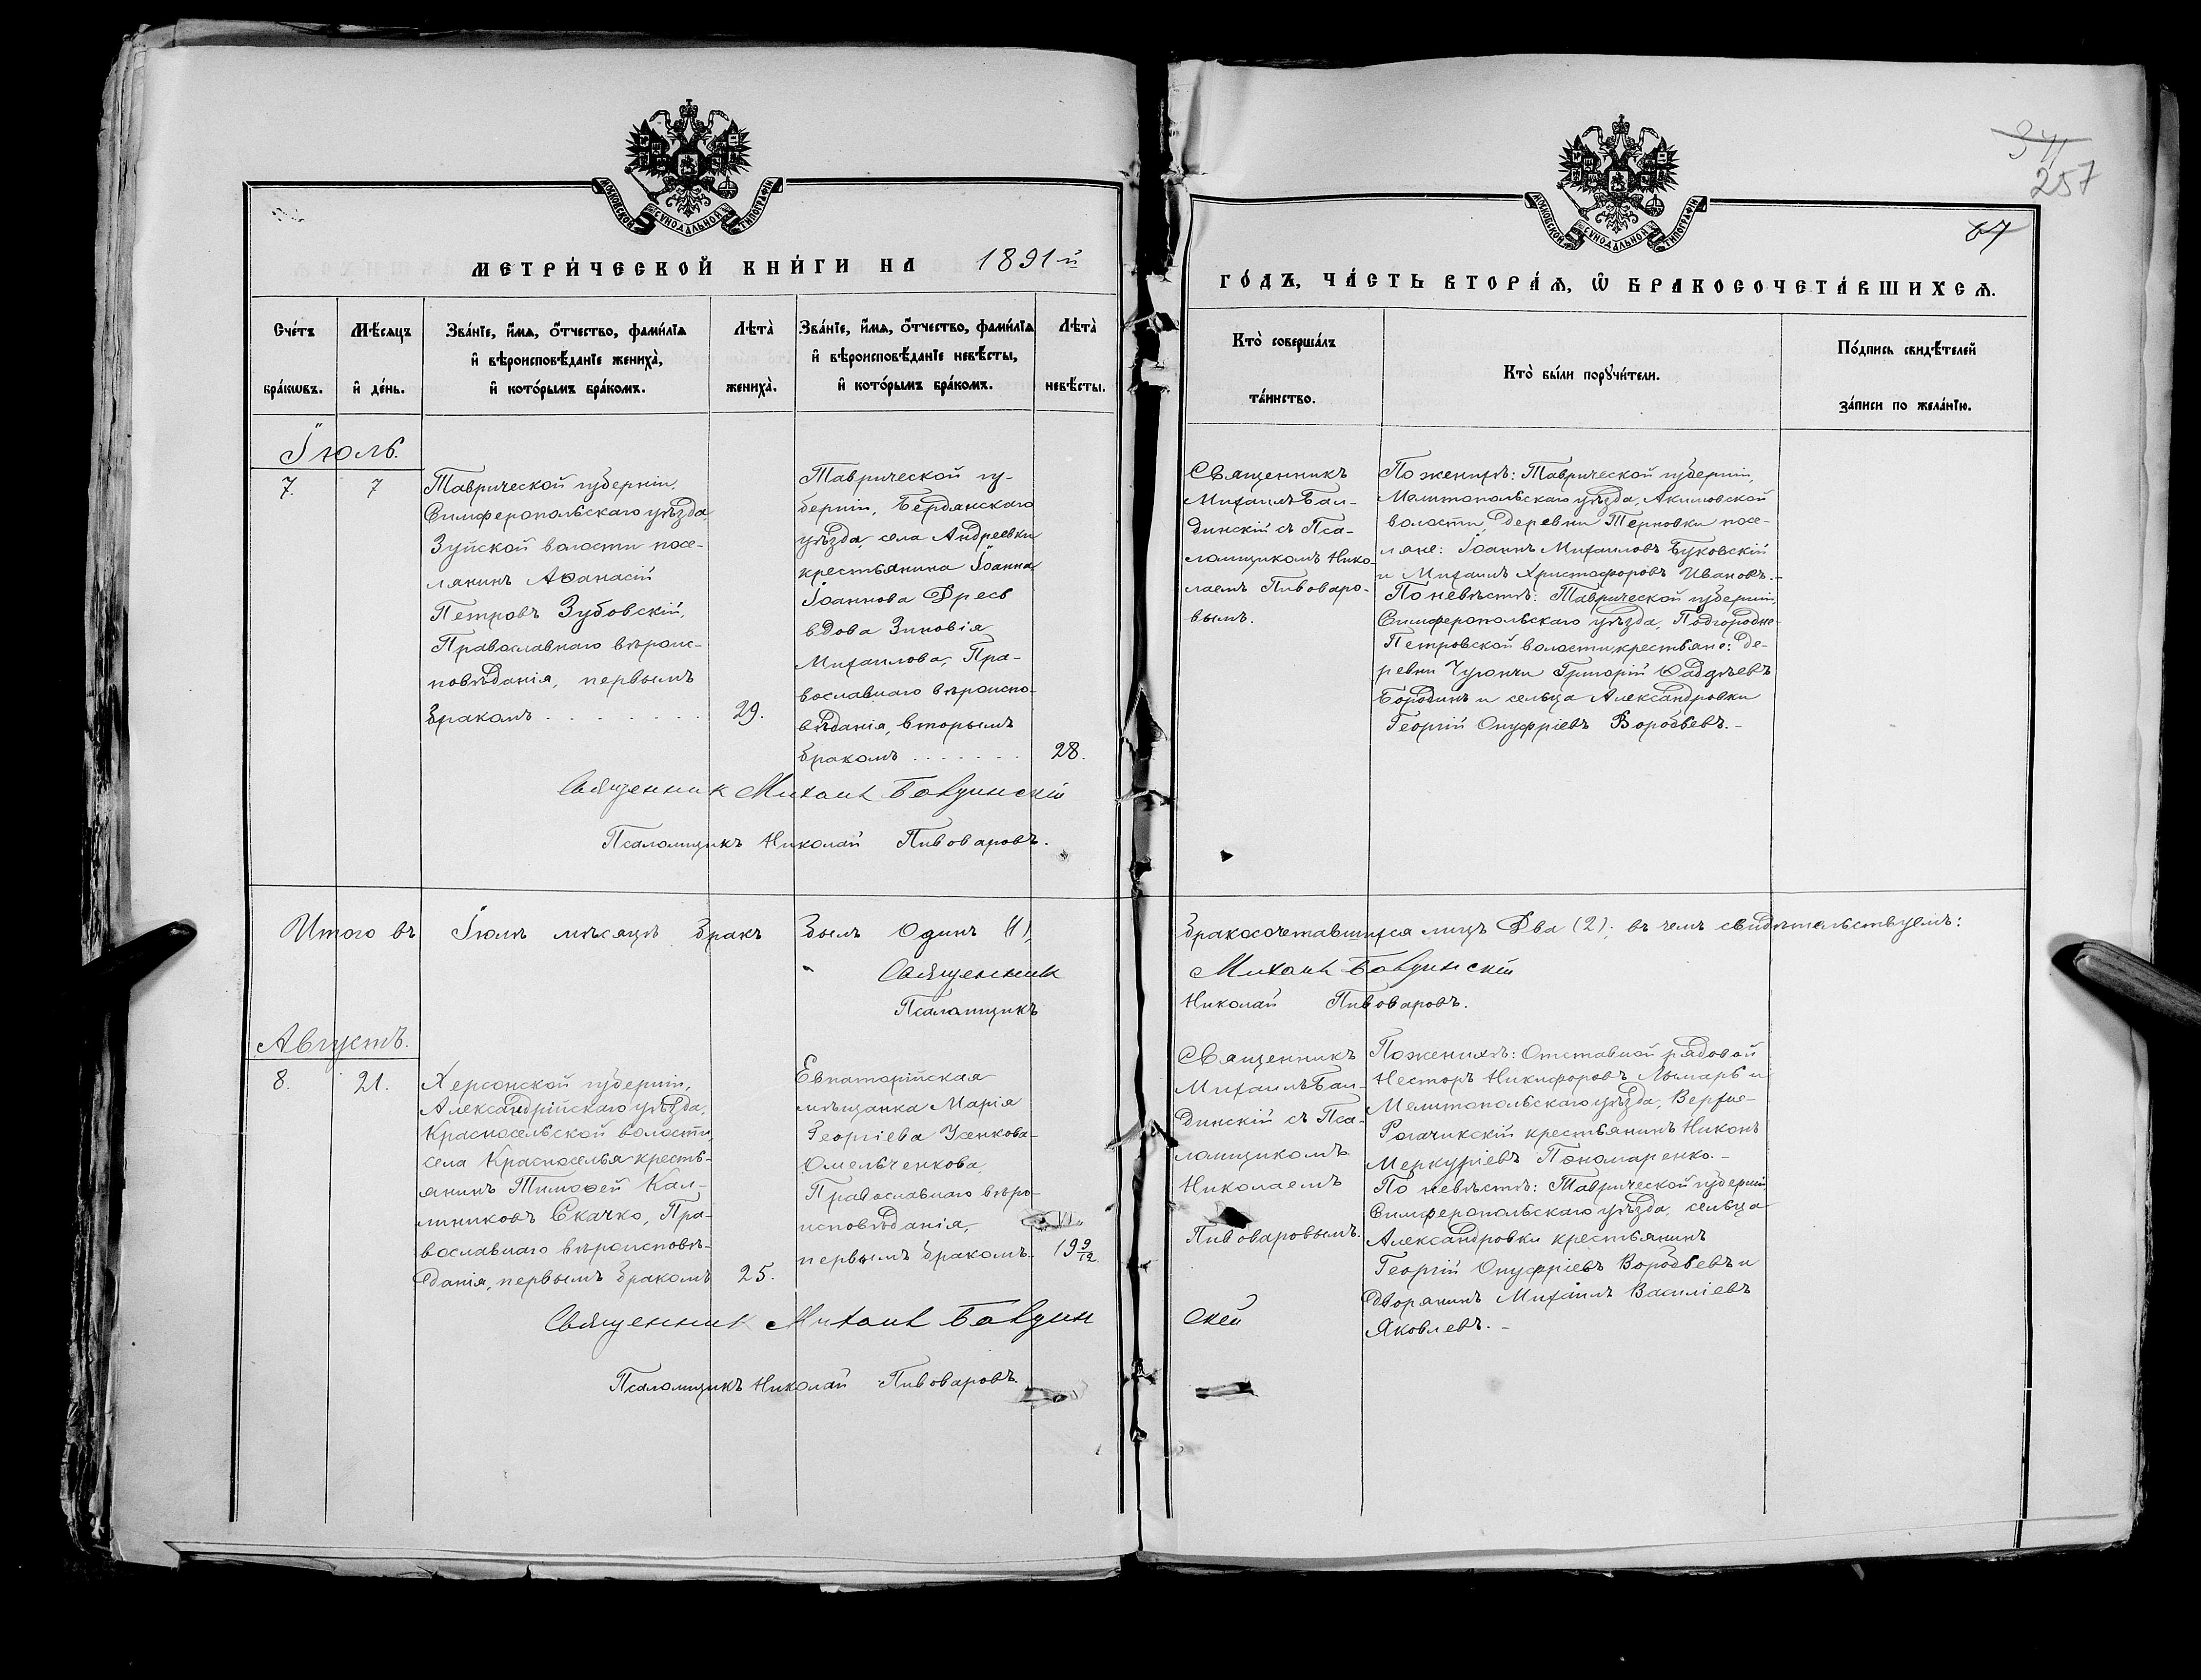 МОСКОВСКОЙ СѴНОДАЛЬНОЙ ТИПОГРАФІИ
МЕТРИ́ЧЕСКОЙ КНИ́ГИ НА 1891й
Сче́тъ бра́кѡвъ.
Мѣ́сяцъ и҆ де́нь.
Зва́нїе, и҆́мѧ, ѻ҆́тчество, фами́лїѧ
и҆ вѣроисповѣ́данїе жениха̀,
и҆ кото́рымъ бра́комъ.
Лѣта̀ жениха̀.
Зва́нїе, и҆́мѧ, ѻ҆́тчество, фами́лїѧ
и҆ вѣроисповѣ́данїе невѣ́сты,
и҆ кото́рымъ бра́комъ.
Лѣта̀ невѣ́сты.
Іюль.
7.
7
Таврической губерніи,
Симферопольскаго уѣзда,
Зуйской волости посе-
лянинъ Аѳанасій
Петровъ Зубовскій,
Православнаго вѣроис-
повѣданія, первымъ
бракомъ . . . . . . . .
29.
Таврической гу-
берніи, Бердянскаго
уѣзда, села Андреевки
крестьянина Іоанна
Іоаннова Дресь
вдова Зиновія
Михаилова, Пра-
вославнаго вѣроиспо-
вѣданія, вторымъ
бракомъ . . . . . . .
28.
Священник Михаил Балдинскій
Псаломщикъ Николай Пивоваровъ.
Итого въ Іюлѣ мѣсяцѣ бракъ былъ Одинъ (1),
Священник
Псаломщикъ
Августъ.
8.
21.
Херсонской губерніи,
Александрійскаго уѣзда,
Красносельской волости,
села Красноселья кресть-
янинъ Тимоѳей Кал-
линиковъ Скачко, Пра-
вославнаго вѣроисповѣ-
данія, первымъ бракомъ
25.
Евпаторійская
мѣщанка Марія
Георгіева Усенкова-
Омельченкова,
Православнаго вѣро-
исповѣданія,
первымъ бракомъ.
19 9/12.
Священник Михаил Балдин
Псаломщикъ Николай Пивоваровъ.
МОСКОВСКОЙ СѴНОДАЛЬНОЙ ТИПОГРАФІИ
257
67
ГО́ДЪ, ЧА́СТЬ ВТОРА́Ѧ, Ѡ҆ БРАКОСОЧЕТА́ВШИХСѦ.
Кто̀ соверша́лъ
та́инство.
Кто̀ бы́ли порꙋчи́тели.
По́дпись свидѣ́телей
за́писи по жела́нїю.
Священникъ
Михаилъ Бал-
динскій съ Пса-
ломщикомъ Нико-
лаемъ Пивоваро-
вымъ.
По женихѣ: Таврической губерніи,
Мелитопольскаго уѣзда, Акимовской
волости, деревни Терновки посе-
ляне: Іоаннъ Михаиловъ Буковскій
и Михаилъ Христофоровъ Ивановъ.-
По невѣстѣ: Таврической губерніи,
Симферопольскаго уѣзда, Подгородне-
Петровской волости, крестьяне: де-
ревни Чуюнчи Григорій Фаддѣевъ
Бородинъ и сельца Александровки
Георгій Онуфріевъ Воробьевъ.-
бракосочетавшихся лицъ Два (2); въ чемъ свидѣтельствуемъ:
Михаил Балдинскій
Николай Пивоваровъ.
Священникъ
Михаилъ Бал-
динскій съ Пса-
ломщикомъ
Николаемъ
Пивоваровымъ.
По женихѣ: Отставной рядовой
Несторъ Никифоровъ Лымарь и
Мелитопольскаго уѣзда, Верхне-
Рогачикскій крестьянинъ Никонъ
Меркуріевъ Пономаренко.-
По невѣстѣ: Таврической губерніи
Симферопольскаго уѣзда, сельца
Александровки крестьянинъ
Георгій Онуфріевъ Воробьевъ и
дворянинъ Михаилъ Василіевъ
Яковлевъ.-
скій